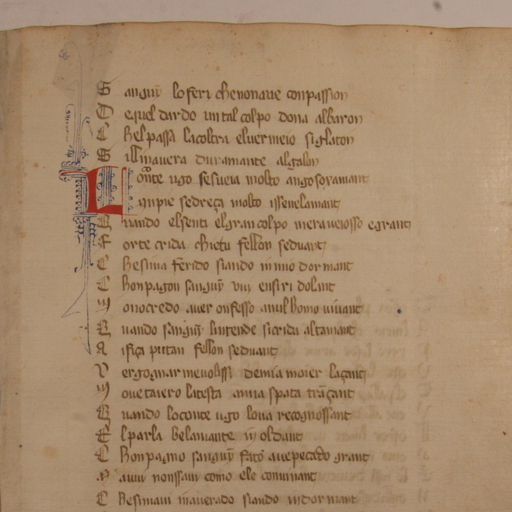 S anguin lo feri che non aue conpassion
D e quel dardo un tal colpo dona al baron
C hel passa la coltra el uermeio siglaton
S illi nauera duramante al galon
L o conte ugo se sueia molto angosoxamant
In pie se dreça molto isnelamant
Q uando el senti el gran colpo meraueiosso e grant
F orte crida chi e tu fellon seduant
C he si ma ferido siando in mio dormant
C honpagon sanguin uui ensi dolant
M o no credo auer confesso a nul homo uiuant
Q uando sanguin lintende si crida altamant
A ifiça putan fellon seduant
V ergognar me uolissi de mia moier laçant
M o ue taiero la testa a mia spata trançant
Q uando lo conte ugo loua recognossant
E l parla belamante in oldant
C honpagno sanguin fato aue pecado grant
come ele conuinant
C he si maui inauerado siando indormant